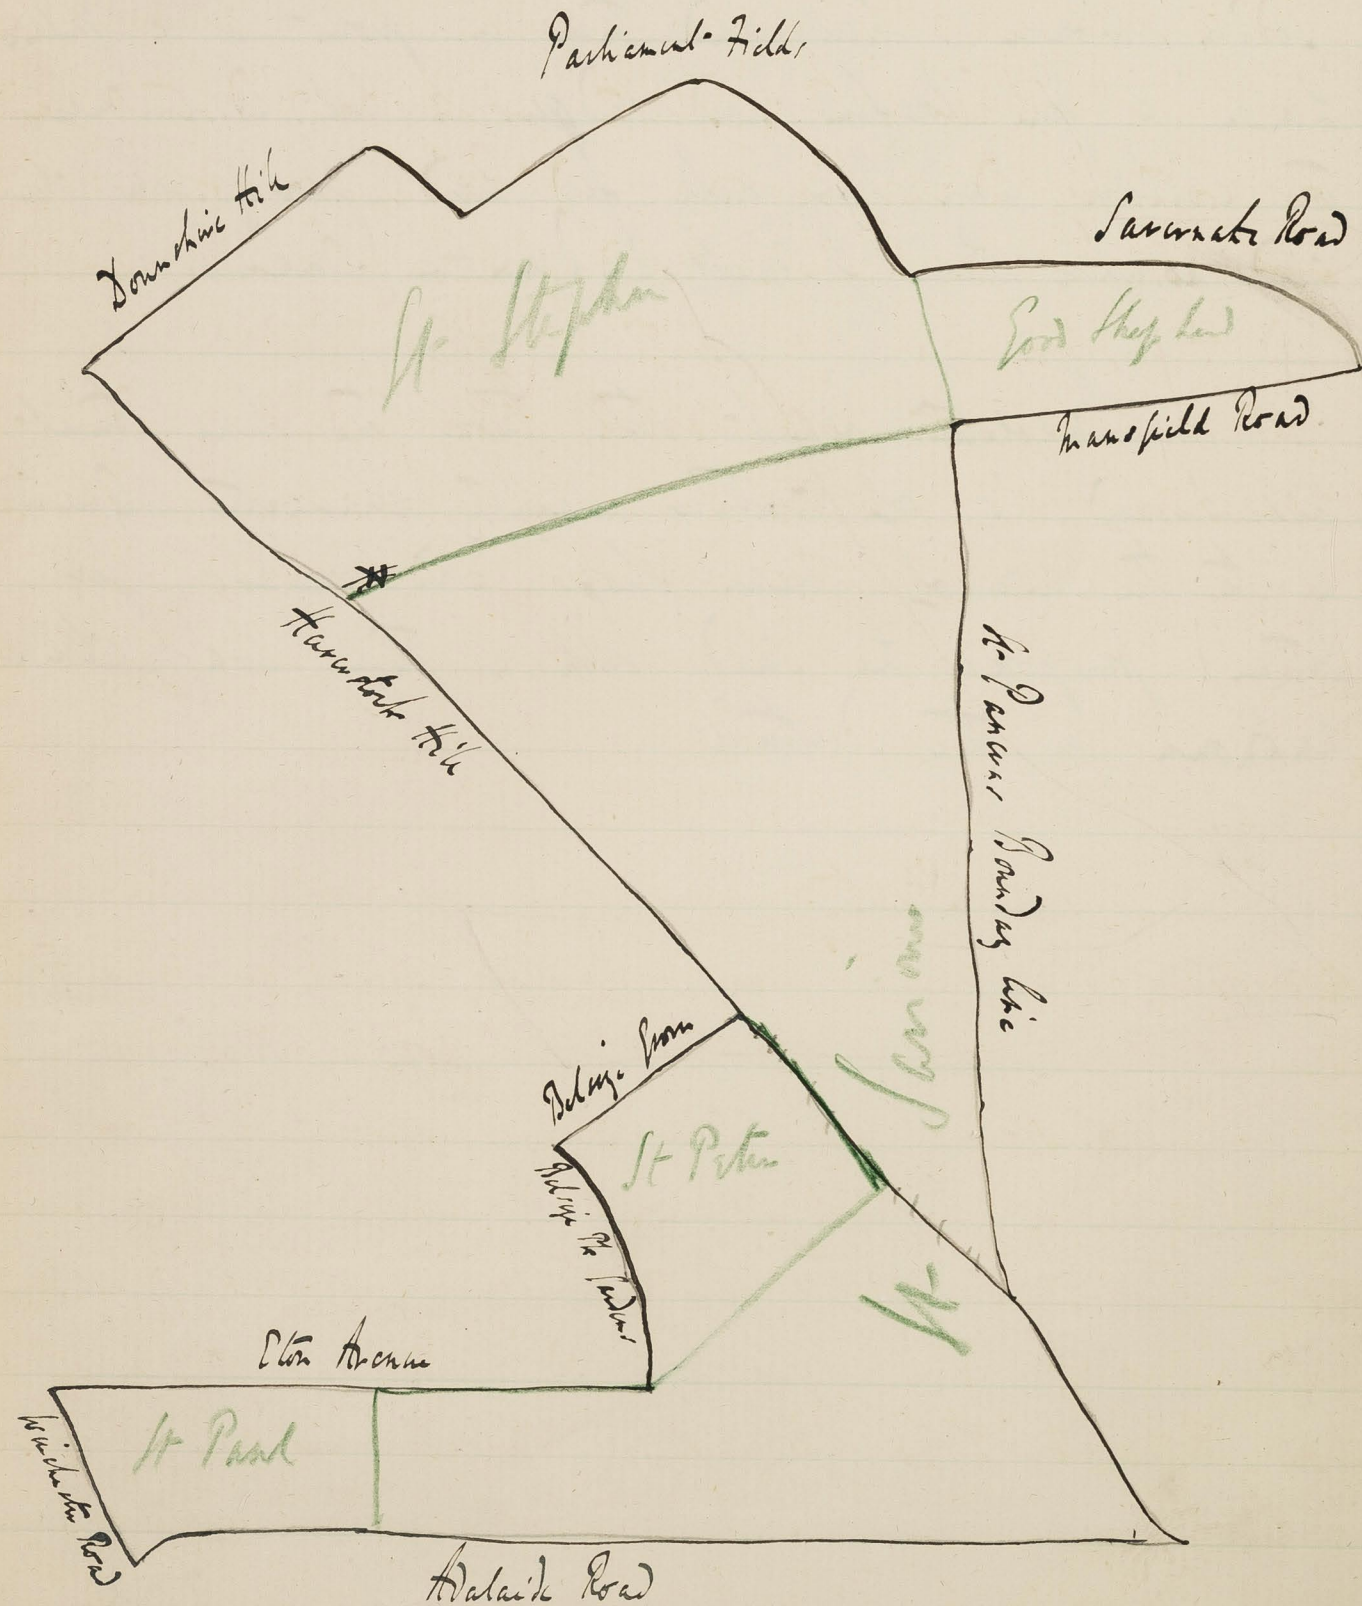 Parliament Fields
Downshire Hill
Savernake Road
St Stephen
Good Shepherd
Mansfield Road
Haverstock Hill
St Pancras Boundary line
St Saviour
Belsize Grove
St Peter
Belsize Pk Gardens
Eton Avenue
St Paul
Winchester Road
Adelaide Road